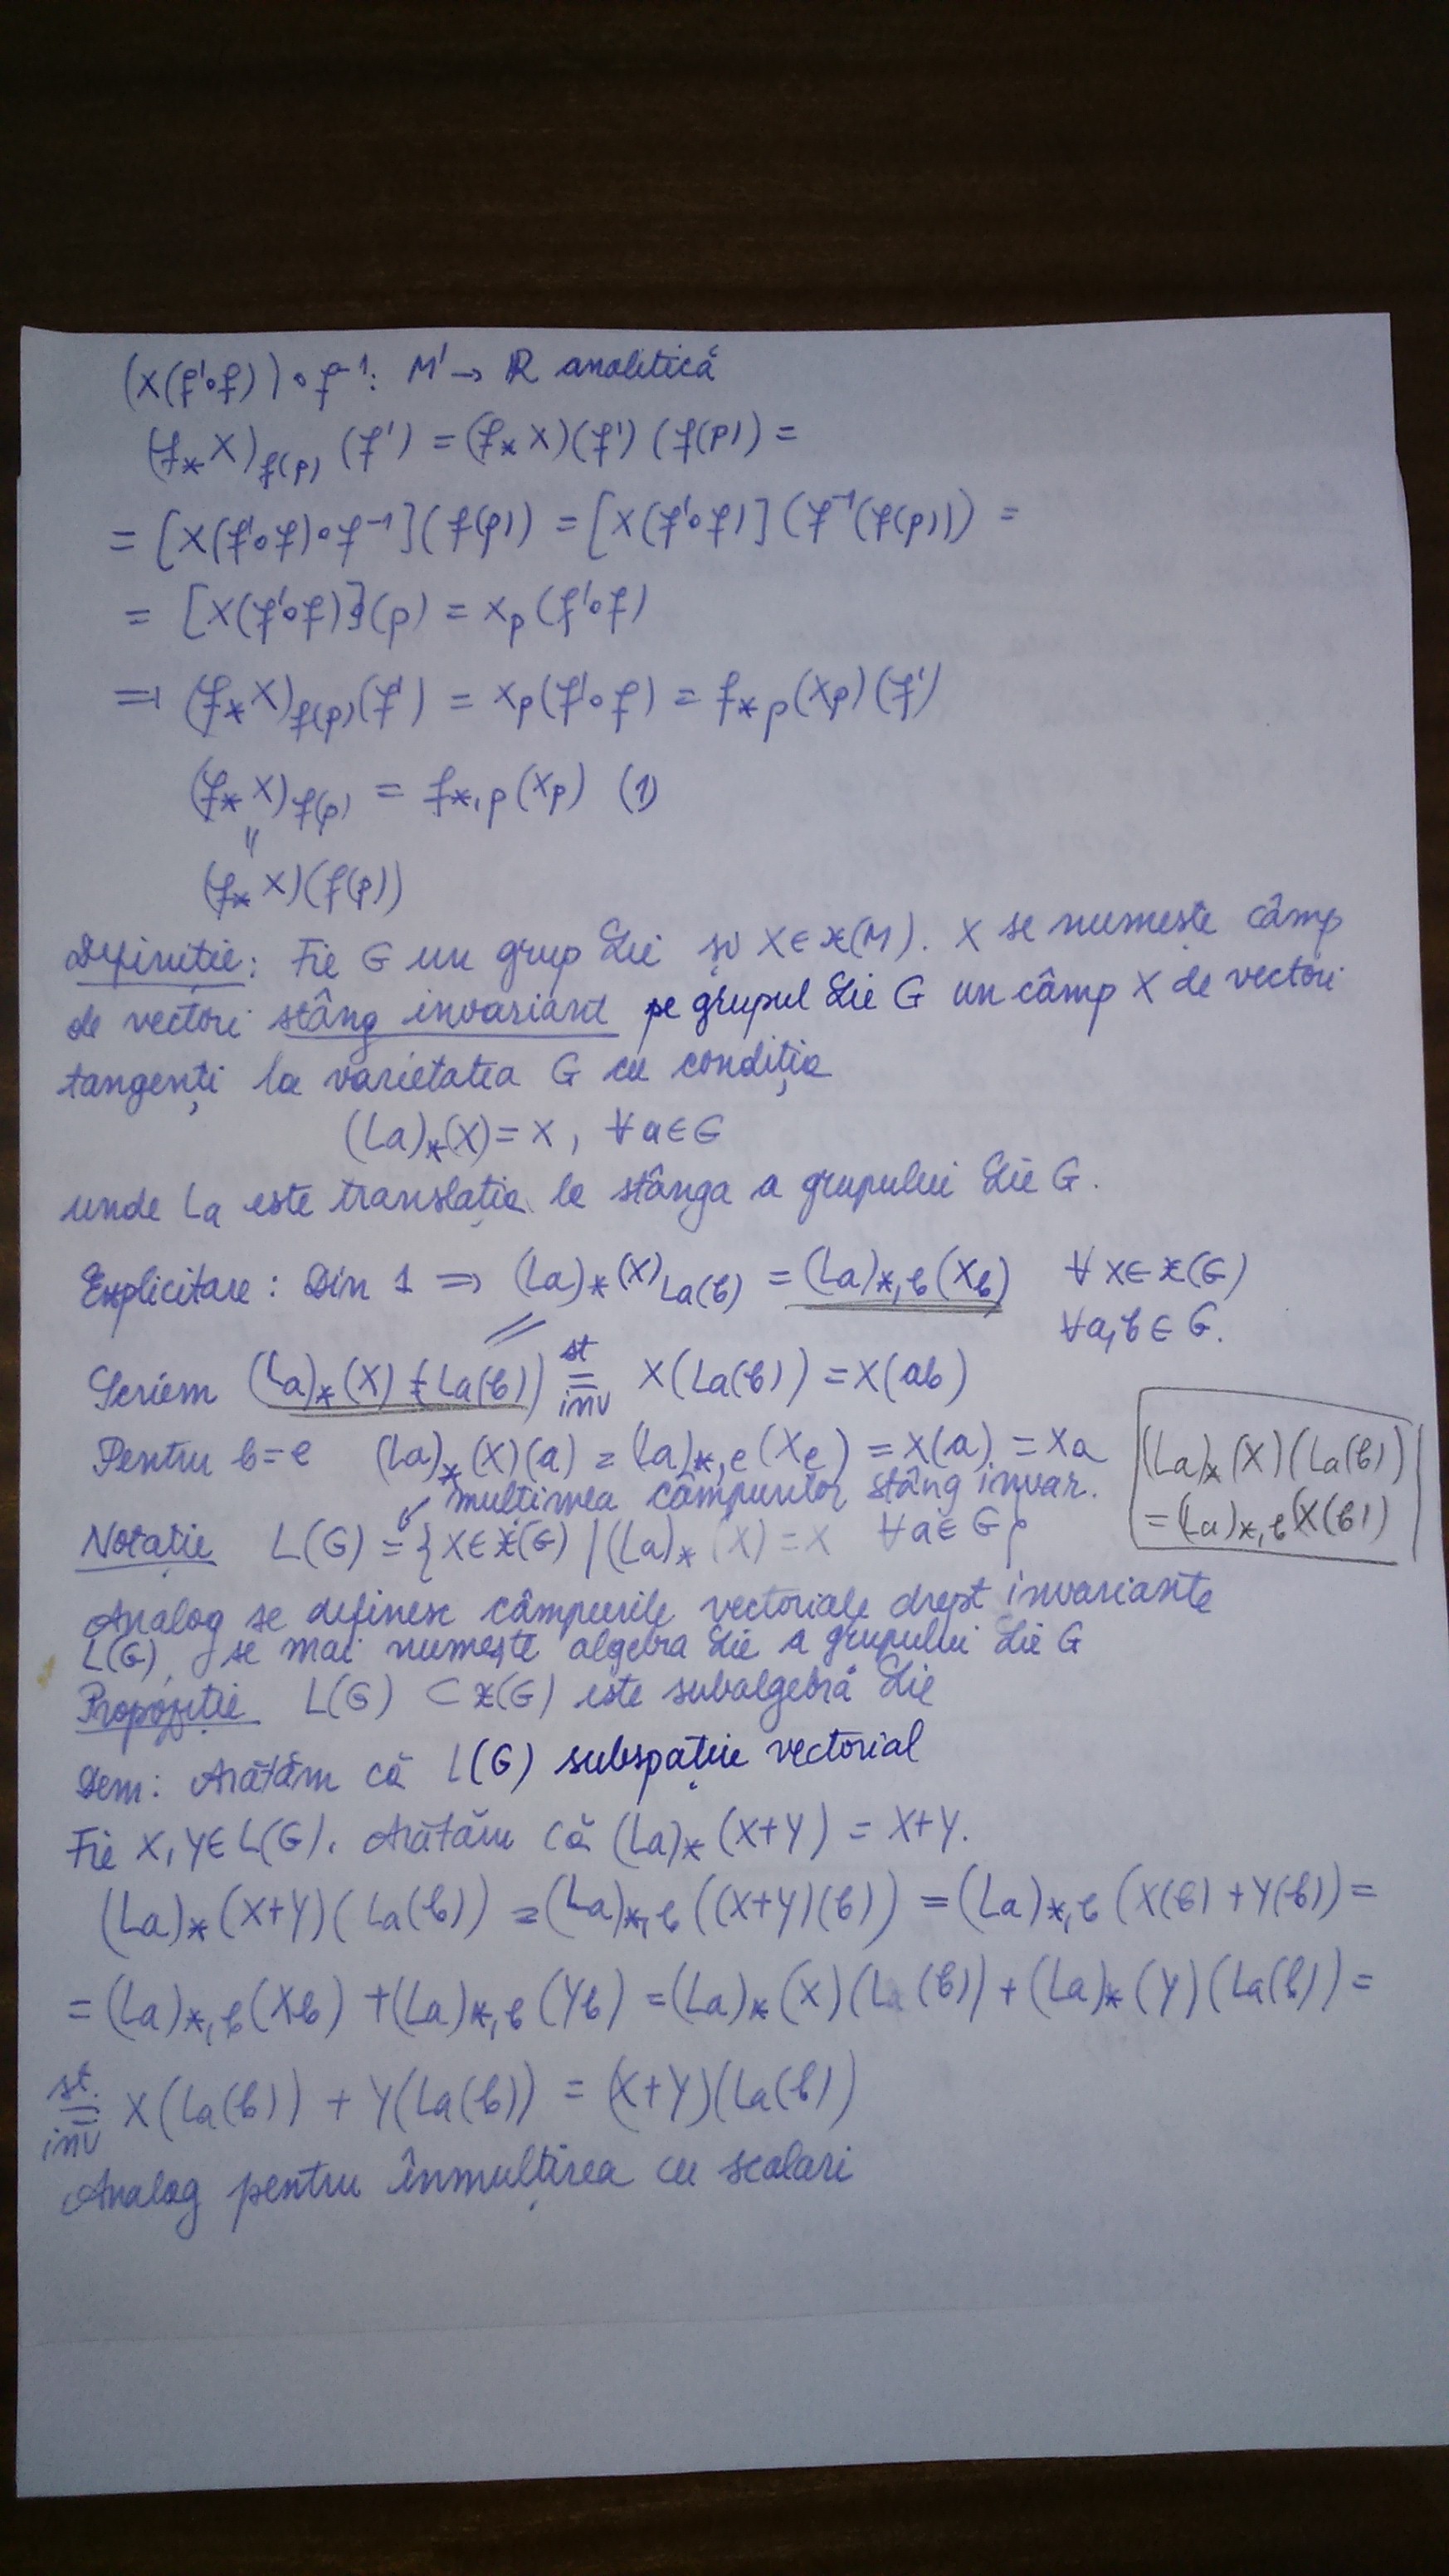 (X(f'∘f))∘f⁻¹: M' → ℝ analitică
(f_* X)_{f(p)} (f') = (f_* X)(f') (f(p)) =
= [X(f'∘f)∘f⁻¹](f(p)) = [X(f'∘f)](f⁻¹(f(p))) =
= [X(f'∘f)](p) = X_p(f'∘f)
⟹ (f_* X)_{f(p)}(f') = X_p(f'∘f) = f_{*p}(X_p)(f')
(f_* X)_{f(p)} = f_{*,p}(X_p) (1)
"
(f_* X)(f(p))
Definiție: Fie G un grup Lie și X∈𝔛(M). X se numește câmp
de vectori stâng invariant pe grupul Lie G un câmp X de vectori
tangenți la varietatea G cu condiția
(La)_*(X) = X, ∀a∈G
unde La este translația la stânga a grupului Lie G.
Explicitare: Din 1 ⟹ (La)_*(X)_{La(b)} = (La)_{*,b}(X_b) ∀X∈𝔛(G)
∀a,b∈G.
Scriem (La)_*(X)(La(b)) =^{st}_{inv} X(La(b)) = X(ab)
Pentru b=e (La)_*(X)(a) = (La)_{*,e}(X_e) = X(a) = Xa
(La)_*(X)(La(b))
= (La)_{*,b}(X(b))
mulțimea câmpurilor stâng invar.
Notație L(G) = {X∈𝔛(G) | (La)_*(X) = X ∀a∈G}
Analog se definesc câmpurile vectoriale drept invariante
L(G) se mai numește algebra Lie a grupului Lie G
Propoziție L(G) ⊂ 𝔛(G) este subalgebră Lie
Dem: Arătăm că L(G) subspațiu vectorial
Fie X, Y∈L(G). Arătăm că (La)_*(X+Y) = X+Y.
(La)_*(X+Y)(La(b)) = (La)_{*,b}((X+Y)(b)) = (La)_{*,b}(X(b)+Y(b)) =
= (La)_{*,b}(X_b) + (La)_{*,b}(Y_b) = (La)_*(X)(La(b)) + (La)_*(Y)(La(b)) =
=^{st.}_{inv} X(La(b)) + Y(La(b)) = (X+Y)(La(b))
Analog pentru înmulțirea cu scalari